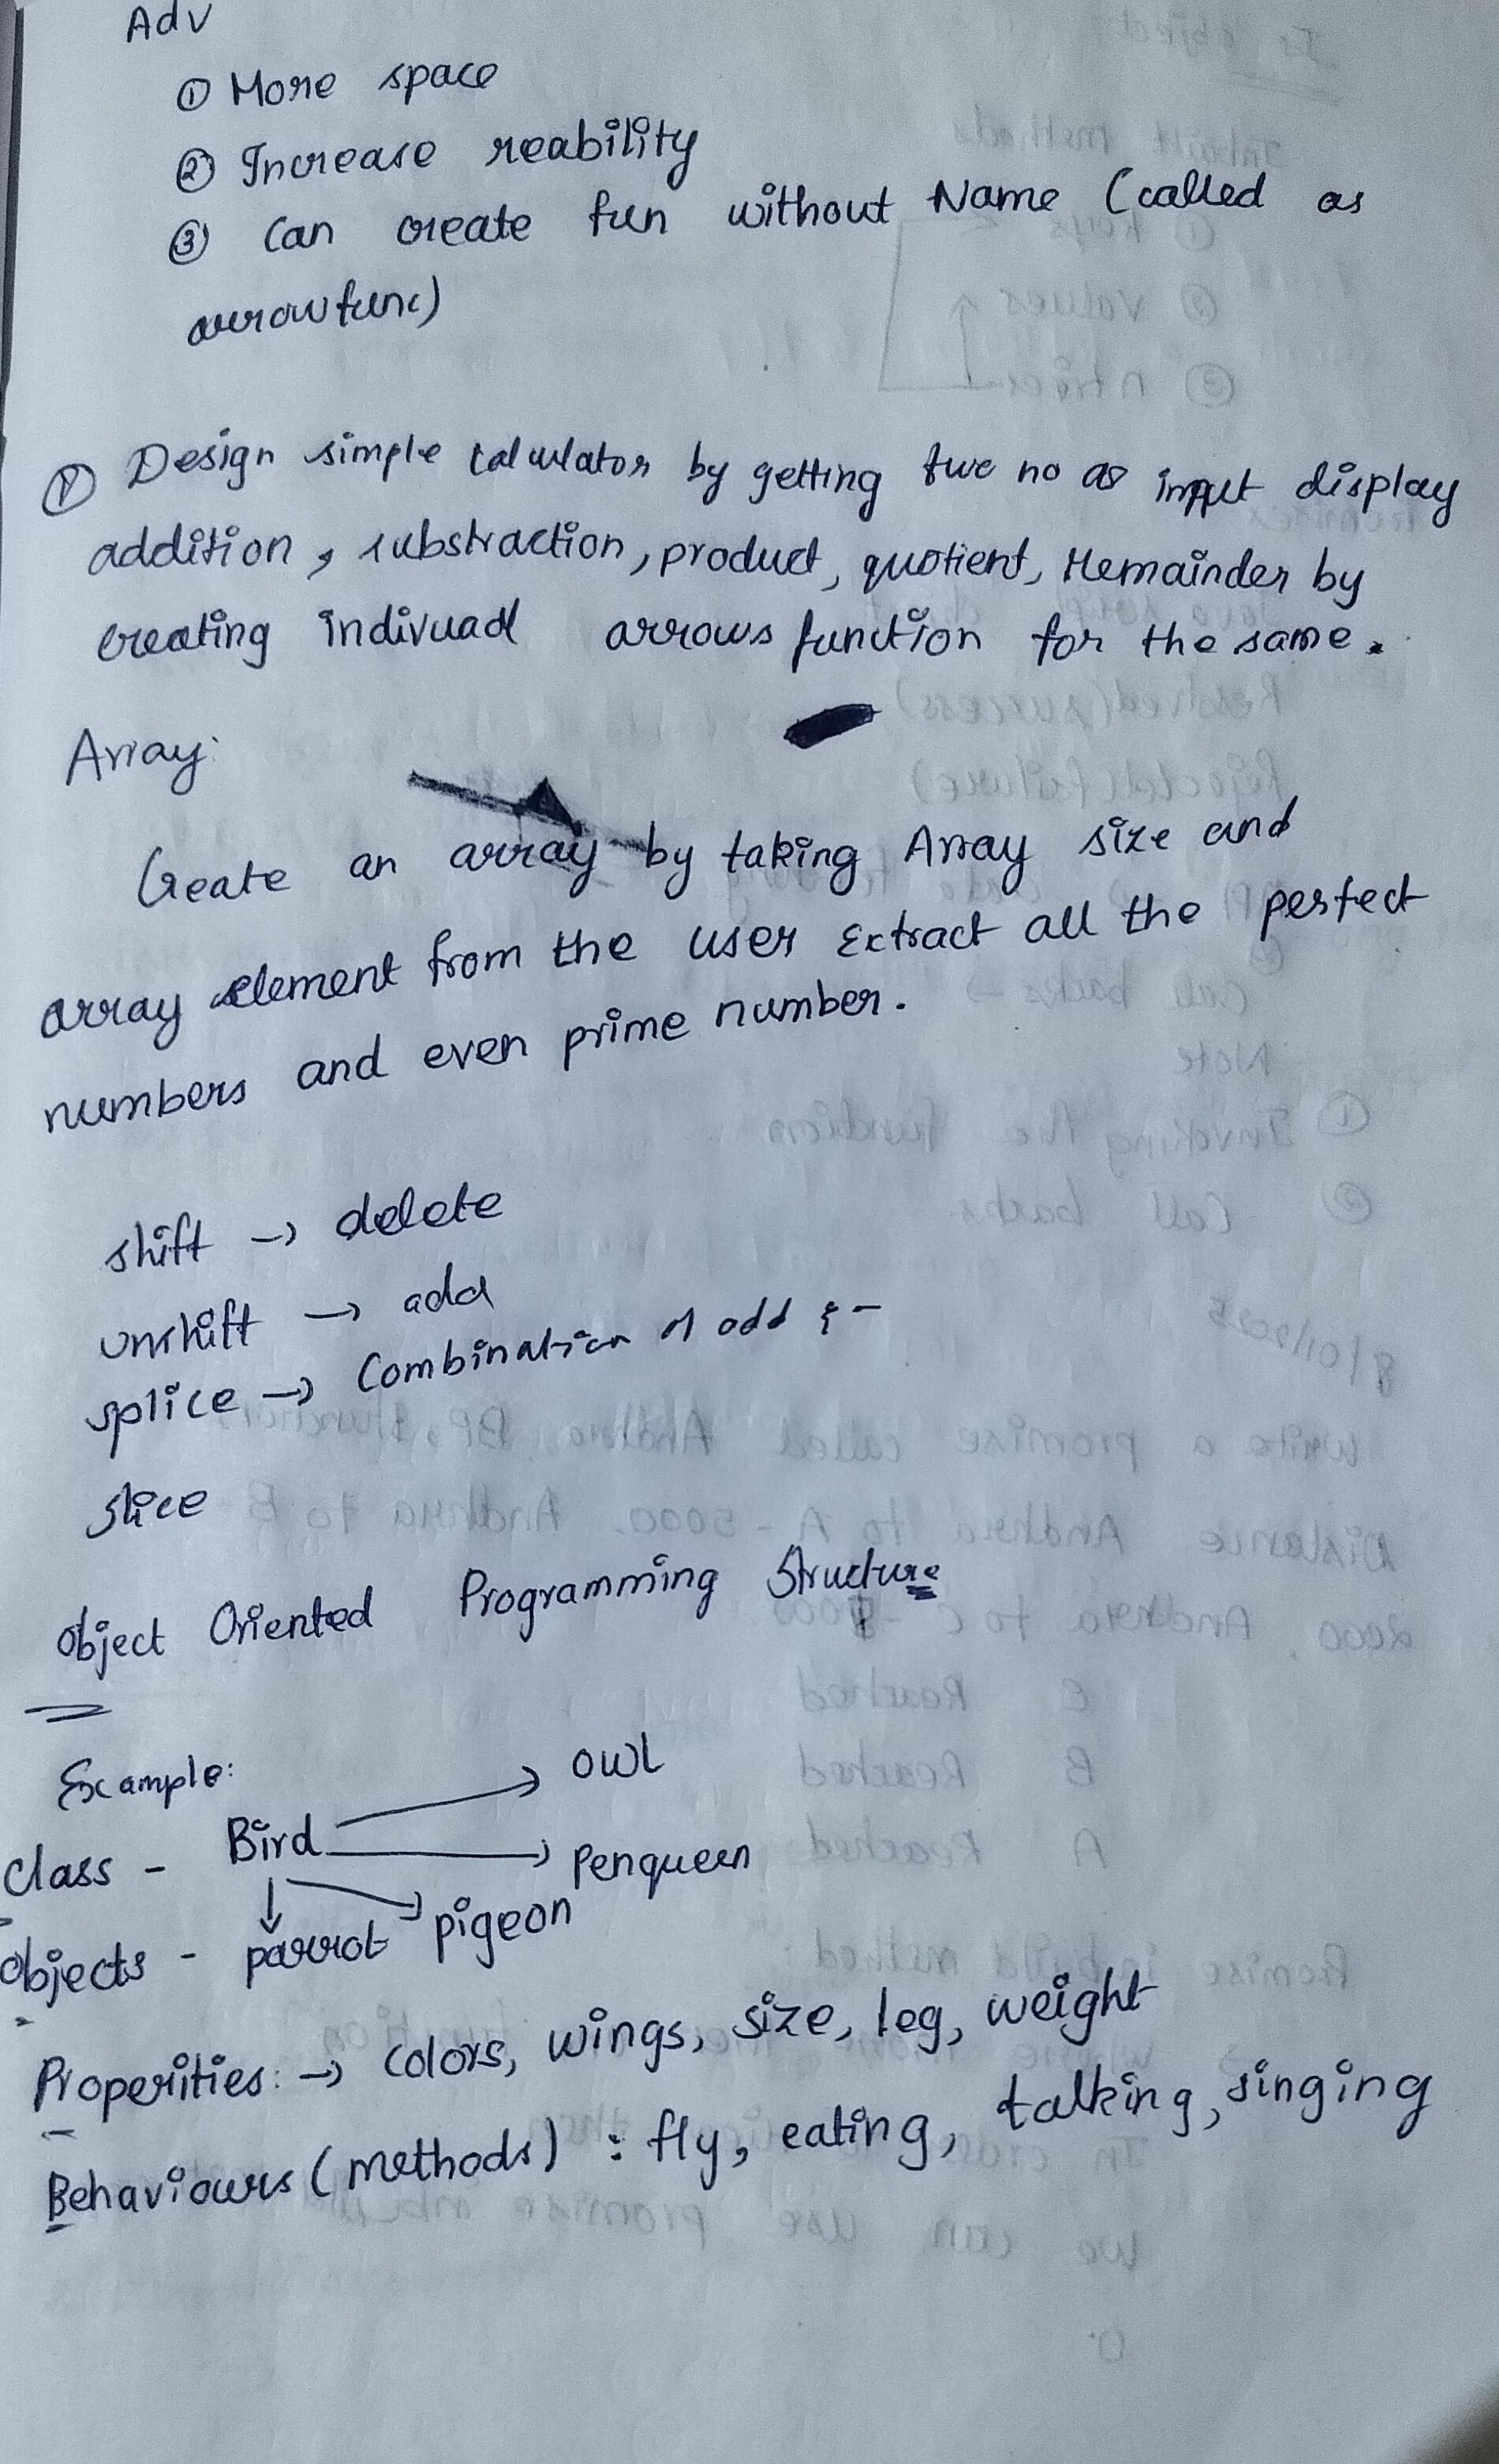 Adv
① More space
② Increase reability
③ Can create fun without Name (called as
arrowfunc)
Ⓟ Design simple calculator by getting two no as input display
addition, substraction, product, quotient, Remainder by
creating indivuadl arrows function for the same.
Array:
Create an array by taking Array size and
array element from the user Extract all the perfect
numbers and even prime number.
shift → delete
unshift → add
splice → Combination of add & -
slice
Object Oriented Programming Structure
Example:
owl
Class - Bird
Penqueen
Objects - parrot pigeon
Properities: → colors, wings, size, leg, weight
Behaviours (methods) : fly, eating, talking, singing